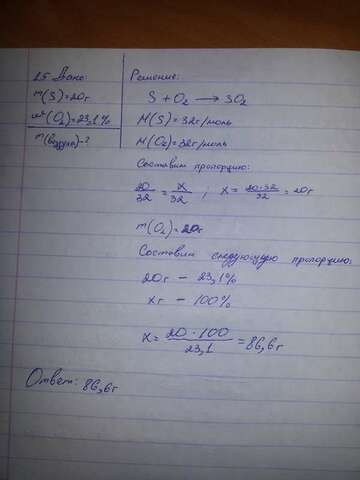 25 Дано:
m(S)=20г
ω(O₂)=23,1%
m(воздуха)-?
Решение:
S + O₂ → SO₂
M(S)=32г/моль
M(O₂)=32г/моль
Составим пропорцию:
20/32 = x/32 ; x = 20·32/32 = 20г
m(O₂)=20г
Составим следующую пропорцию:
20г – 23,1%
xг – 100%
x = 20·100/23,1 = 86,6г
Ответ: 86,6г